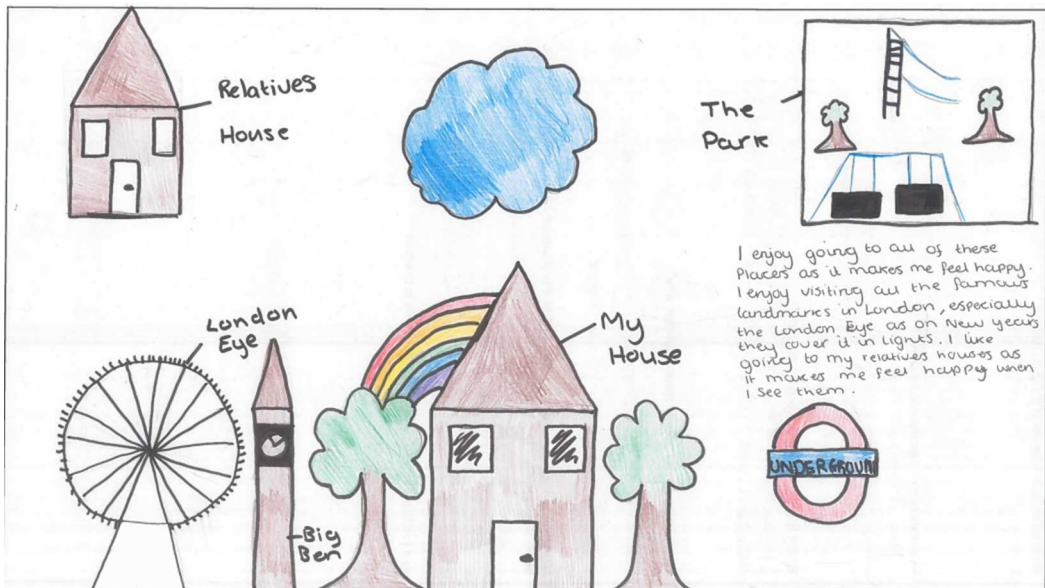 Relatives
House
The
Park
I enjoy going to all of these
Places as it makes me feel happy.
I enjoy visiting all the famous
landmarks in London, especially
the London Eye as on New Years
they cover it in lights. I like
going to my relatives houses as
it makes me feel happy when
I see them.
London
Eye
My
House
UNDERGROUN
Big
Ben